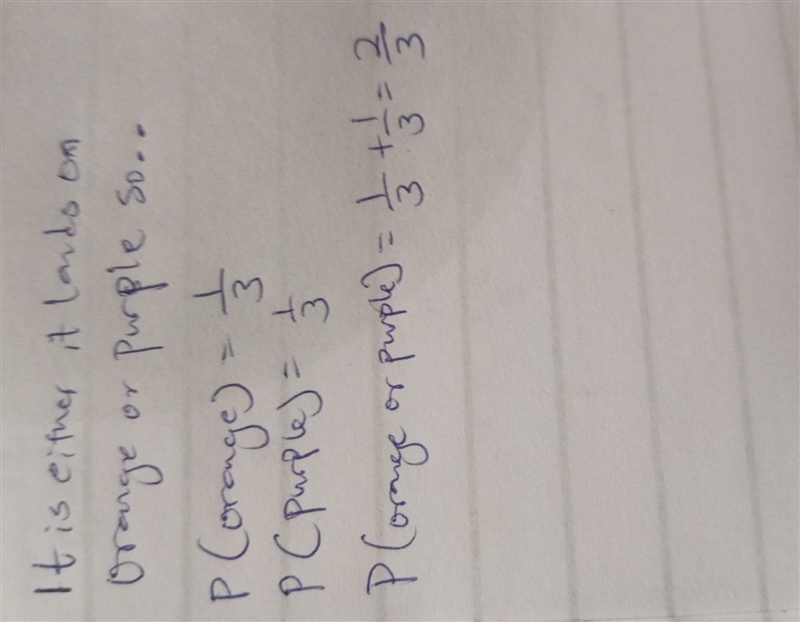 It is either it lands on
Orange or Purple so..
P(orange) = 1/3
P(purple) = 1/3
P(orange or purple) = 1/3 + 1/3 = 2/3